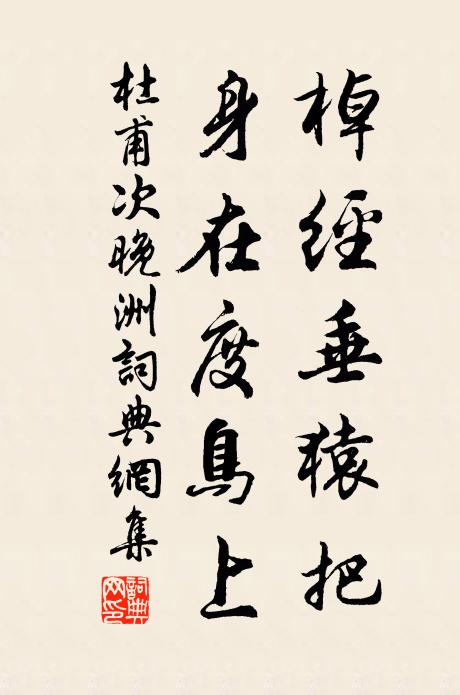 棹經垂猿把
身在度鳥上
杜甫次晚洲詞典網集
詞典網印